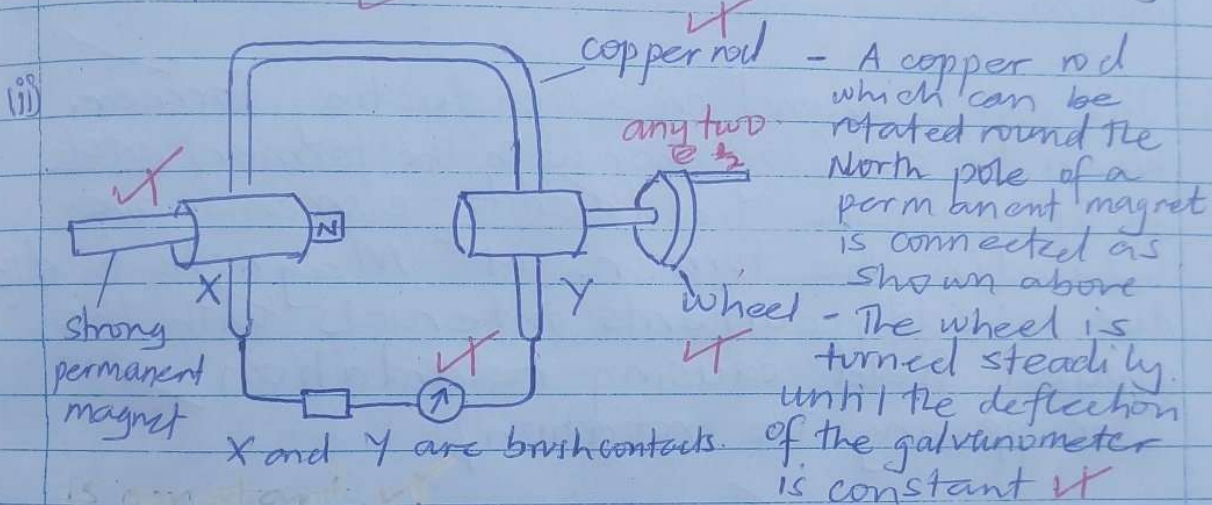 (ii)
copper rod
any two
@ ½
N
X
Y
wheel
strong
permanent
magnet
X and Y are brush contacts.
- A copper rod
which can be
rotated round the
North pole of a
permanent magnet
is connected as
shown above
- The wheel is
turned steadily.
until the deflection
of the galvanometer
is constant